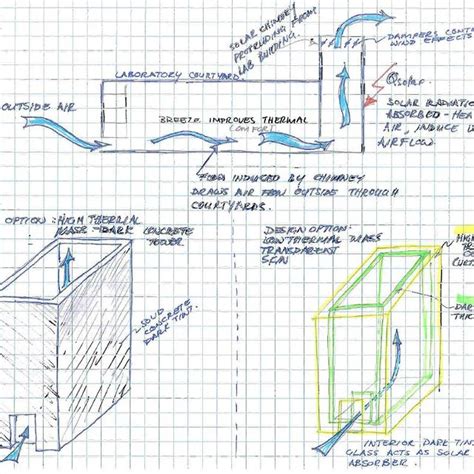 SOLAR CHIMNEY
PROTRUDING FROM
LAB BUILDING.
DAMPERS CONT
WIND EFFECTS
LABORATORY COURTYARD.
Qsolar
SOLAR RADIA
ABSORBED - HEA
AIR, INDUCE U
AIRFLOW
OUTSIDE AIR
BREEZE IMPROVES THERMAL
COMFORT
INDUCED BY CHIMNEY
DRAWS AIR FROM OUTSIDE THROUGH
COURTYARDS.
OPTION: HIGH THERMAL
MASS - DARK CONCRETE
TOWER
DESIGN OPTION:
LOW THERMAL MASS
TRANSPARENT
SKIN
HIGH
TR
CURT
DAR
THIC
SOLID
CONCRETE
DARK TINT.
INTERIOR DARK TINT
GLASS ACTS AS SOLAR
ABSORBER.